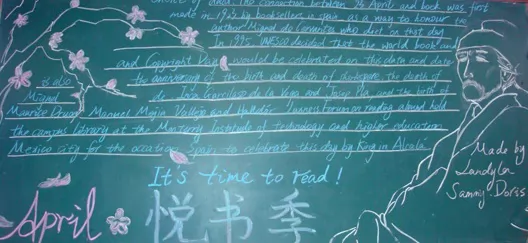 choice of area. The connection between 23 April and book was first
made in 1923 by booksellers in spain as a way to honour the
author Miguel de Cervantes who died on that day
In 1995, UNESCO decided that the world book and
and Copyright Day would be celebrated on this date and date
is also the anniversary of the birth and death of the death of
Inca Garcilaso de la Vega and Josep Pla and the birth of
Maurice Druon Manuel Mejia Vallejo and reading aloud hold
the campus library at the Monterrey Institute of technology and higher education
Mexico city for the occation. Spain to celebrate this day by King in Alcala
It's time to read!
April
悦书季
Made by
Landyla
Sammy. Dorss